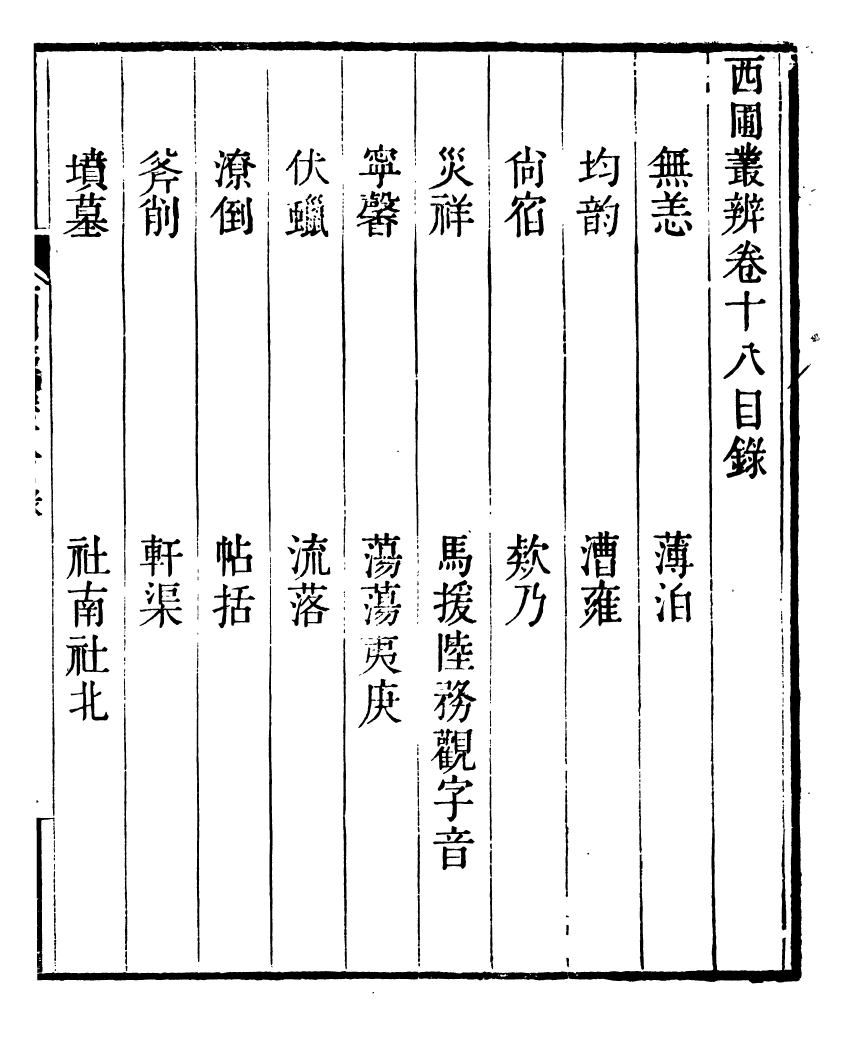 西圃叢辨卷十八目錄
無恙　薄泊
均韵　漕雍
尙宿　欸乃
災祥　馬援陸務觀字音
寧馨　蕩蕩夷庚
伏蠟　流落
潦倒　帖括
斧削　軒渠
墳墓　社南社北